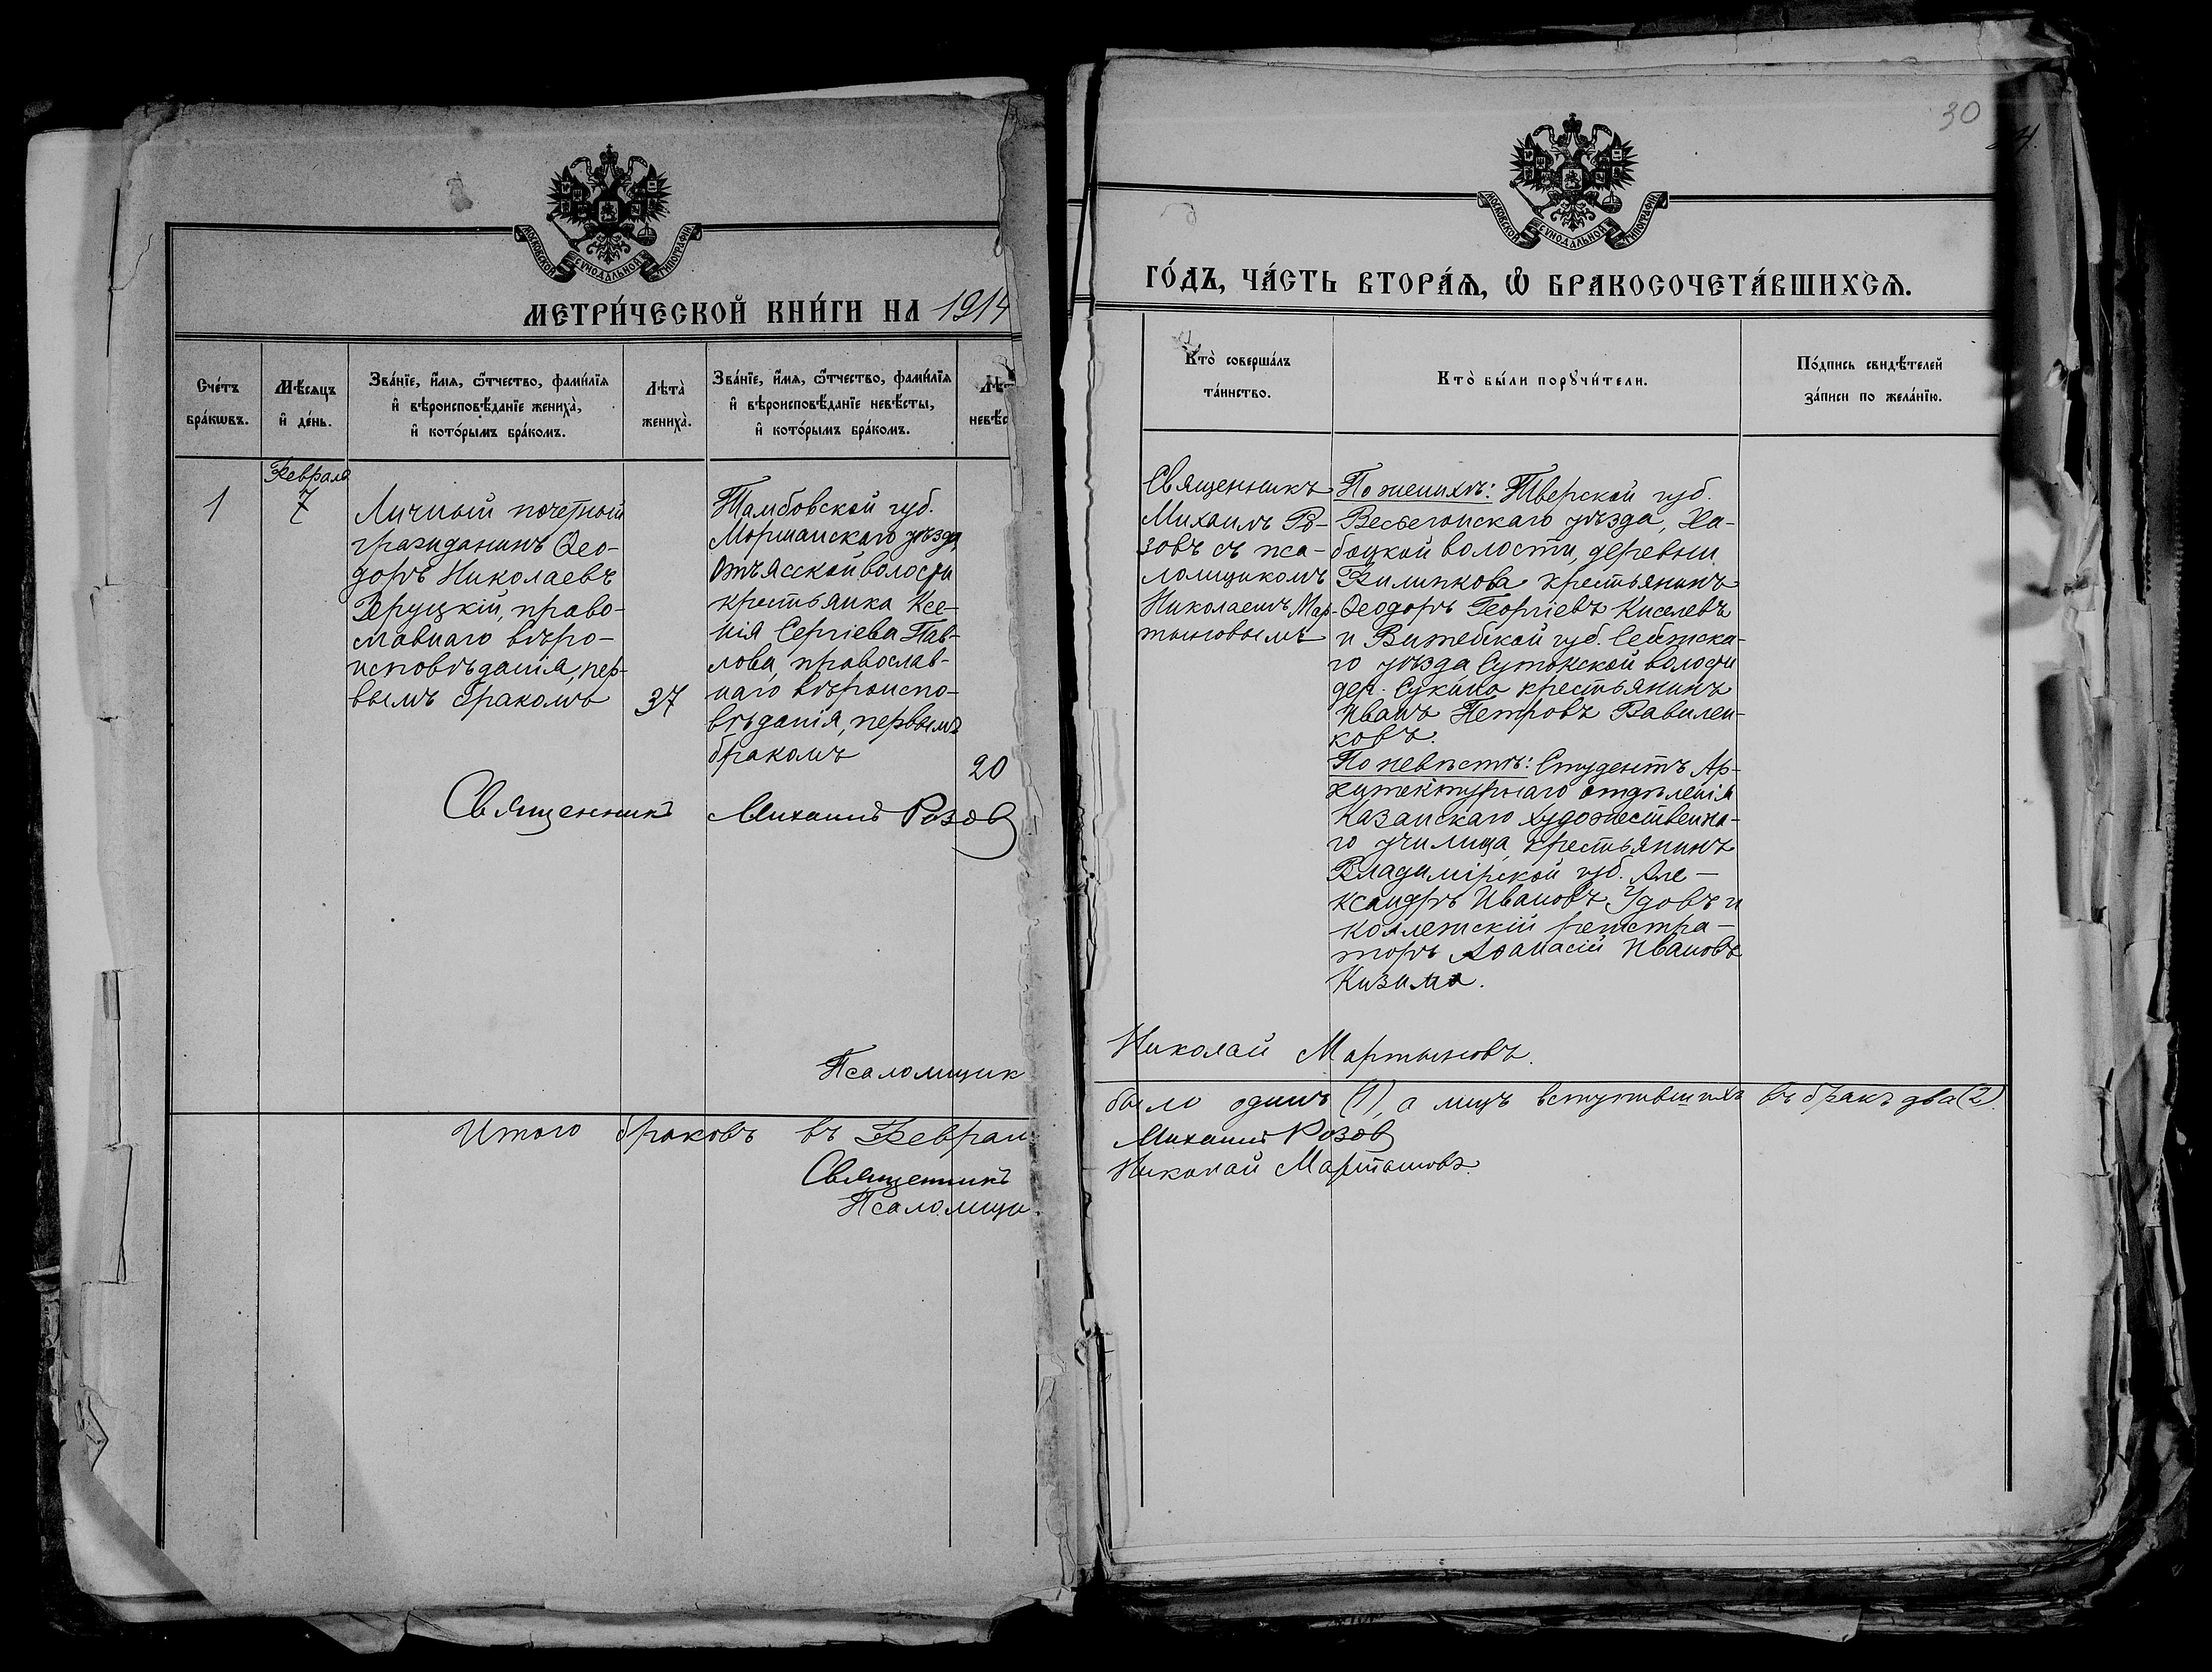 МОСКОВСКОЙ СѴНОДАЛЬНОЙ ТИПОГРАФІИ
МЕТРИ́ЧЕСКОЙ КНИ́ГИ НА 1914
Сче́тъ бра́кωвъ.
Мѣ́сяцъ и҆ де́нь.
Зва́нїе, и҆́мя, ѿ́тчество, фами́лїя
и҆ вѣроисповѣ́данїе жениха̀,
и҆ кото́рымъ бра́комъ.
Лѣта̀ жениха̀.
Зва́нїе, и҆́мя, ѿ́тчество, фами́лїя
и҆ вѣроисповѣ́данїе невѣ́сты,
и҆ кото́рымъ бра́комъ.
Лѣт
невѣ́с
1
Февраля
7
Личный почетный
гражданинъ Ѳео-
доръ Николаевъ
Веруцкій, право-
славнаго вѣро-
исповѣданія, пер-
вымъ бракомъ
37
Тамбовской губ.
Моршанскаго уѣзда
Отъясской волости
крестьянка Ксе-
нія Сергіева Пав-
лова, православ-
наго вѣроиспо-
вѣданія, первымъ
бракомъ
20
Священникъ Михаилъ Розовъ
Псаломщик
Итого браковъ въ Феврал
Священникъ
Псаломщи
30
МОСКОВСКОЙ СѴНОДАЛЬНОЙ ТИПОГРАФІИ
ГО́ДЪ, ЧА́СТЬ ВТОРА́Ѧ, Ѡ҆ БРАКОСОЧЕТА́ВШИХСѦ.
Кто̀ соверша́лъ
та́инство.
Кто̀ бы́ли порꙋчи́тели.
По́дпись свидѣ́телей
за́писи по жела́нїю.
Священникъ
Михаилъ Ро-
зовъ съ пса-
ломщикомъ
Николаемъ Мар-
тыновымъ
По женихѣ: Тверской губ.
Весьегонскаго уѣзда, Ха-
боцкой волости, деревни
Филипкова крестьянинъ
Ѳеодоръ Георгіевъ Киселевъ
и Витебской губ. Себежска-
го уѣзда Сутокской волости
дер. Сукино крестьянинъ
Иванъ Петровъ Вавилен-
ковъ.
По невѣстѣ: Студентъ Ар-
хитектурнаго отдѣленія
Казанскаго художественна-
го училища, крестьянинъ
Владимірской губ. Але-
ксандръ Ивановъ Удовъ и
коллежскій регистра-
торъ Аѳанасій Ивановъ
Кизима.
Николай Мартыновъ.
было одинъ (1), а лицъ вступившихъ въ бракъ два (2).
Михаилъ Розовъ
Николай Мартыновъ.